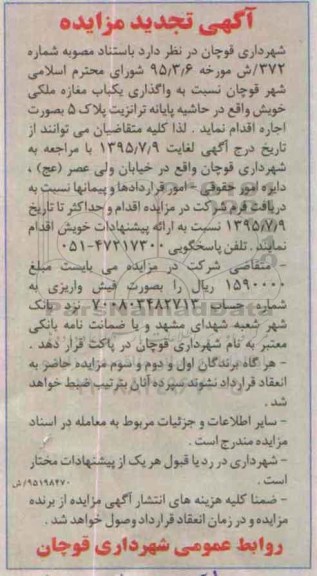 آگهی تجدید مزایده
شهرداری قوچان در نظر دارد باستناد مصوبه شماره
۳۷۲/ش مورخه ۹۵/۳/۶ شورای محترم اسلامی
شهر قوچان نسبت به واگذاری یکباب مغازه ملکی
خویش واقع در حاشیه پایانه ترانزیت پلاک ۵ بصورت
اجاره اقدام نماید . لذا کلیه متقاضیان می توانند از
تاریخ درج آگهی لغایت ۱۳۹۵/۷/۹ با مراجعه به
شهرداری قوچان واقع در خیابان ولی عصر (عج) ،
دایره امور حقوقی - امور قراردادها و پیمانها نسبت به
دریافت فرم شرکت در مزایده اقدام و حداکثر تا تاریخ
۱۳۹۵/۷/۹ نسبت به ارائه پیشنهادات خویش اقدام
نمایند . تلفن پاسخگویی ۴۷۲۱۷۳۰۰-۰۵۱
- متقاضی شرکت در مزایده می بایست مبلغ
۱۵۹۰۰۰۰ ریال را بصورت فیش واریزی به
شماره حساب ۷۰۰۸۰۳۴۸۲۷۱۳ نزد بانک
شهر شعبه شهدای مشهد و یا ضمانت نامه بانکی
معتبر به نام شهرداری قوچان در پاکت قرار دهد .
- هر گاه برندگان اول و دوم و سوم مزایده حاضر به
انعقاد قرارداد نشوند سپرده آنان بترتیب ضبط خواهد
شد .
- سایر اطلاعات و جزئیات مربوط به معامله در اسناد
مزایده مندرج است .
- شهرداری در رد یا قبول هر یک از پیشنهادات مختار
است . ۹۵۱۹۸۴۷۰/ش
- ضمنا کلیه هزینه های انتشار آگهی مزایده از برنده
مزایده و در زمان انعقاد قرارداد وصول خواهد شد .
روابط عمومی شهرداری قوچان